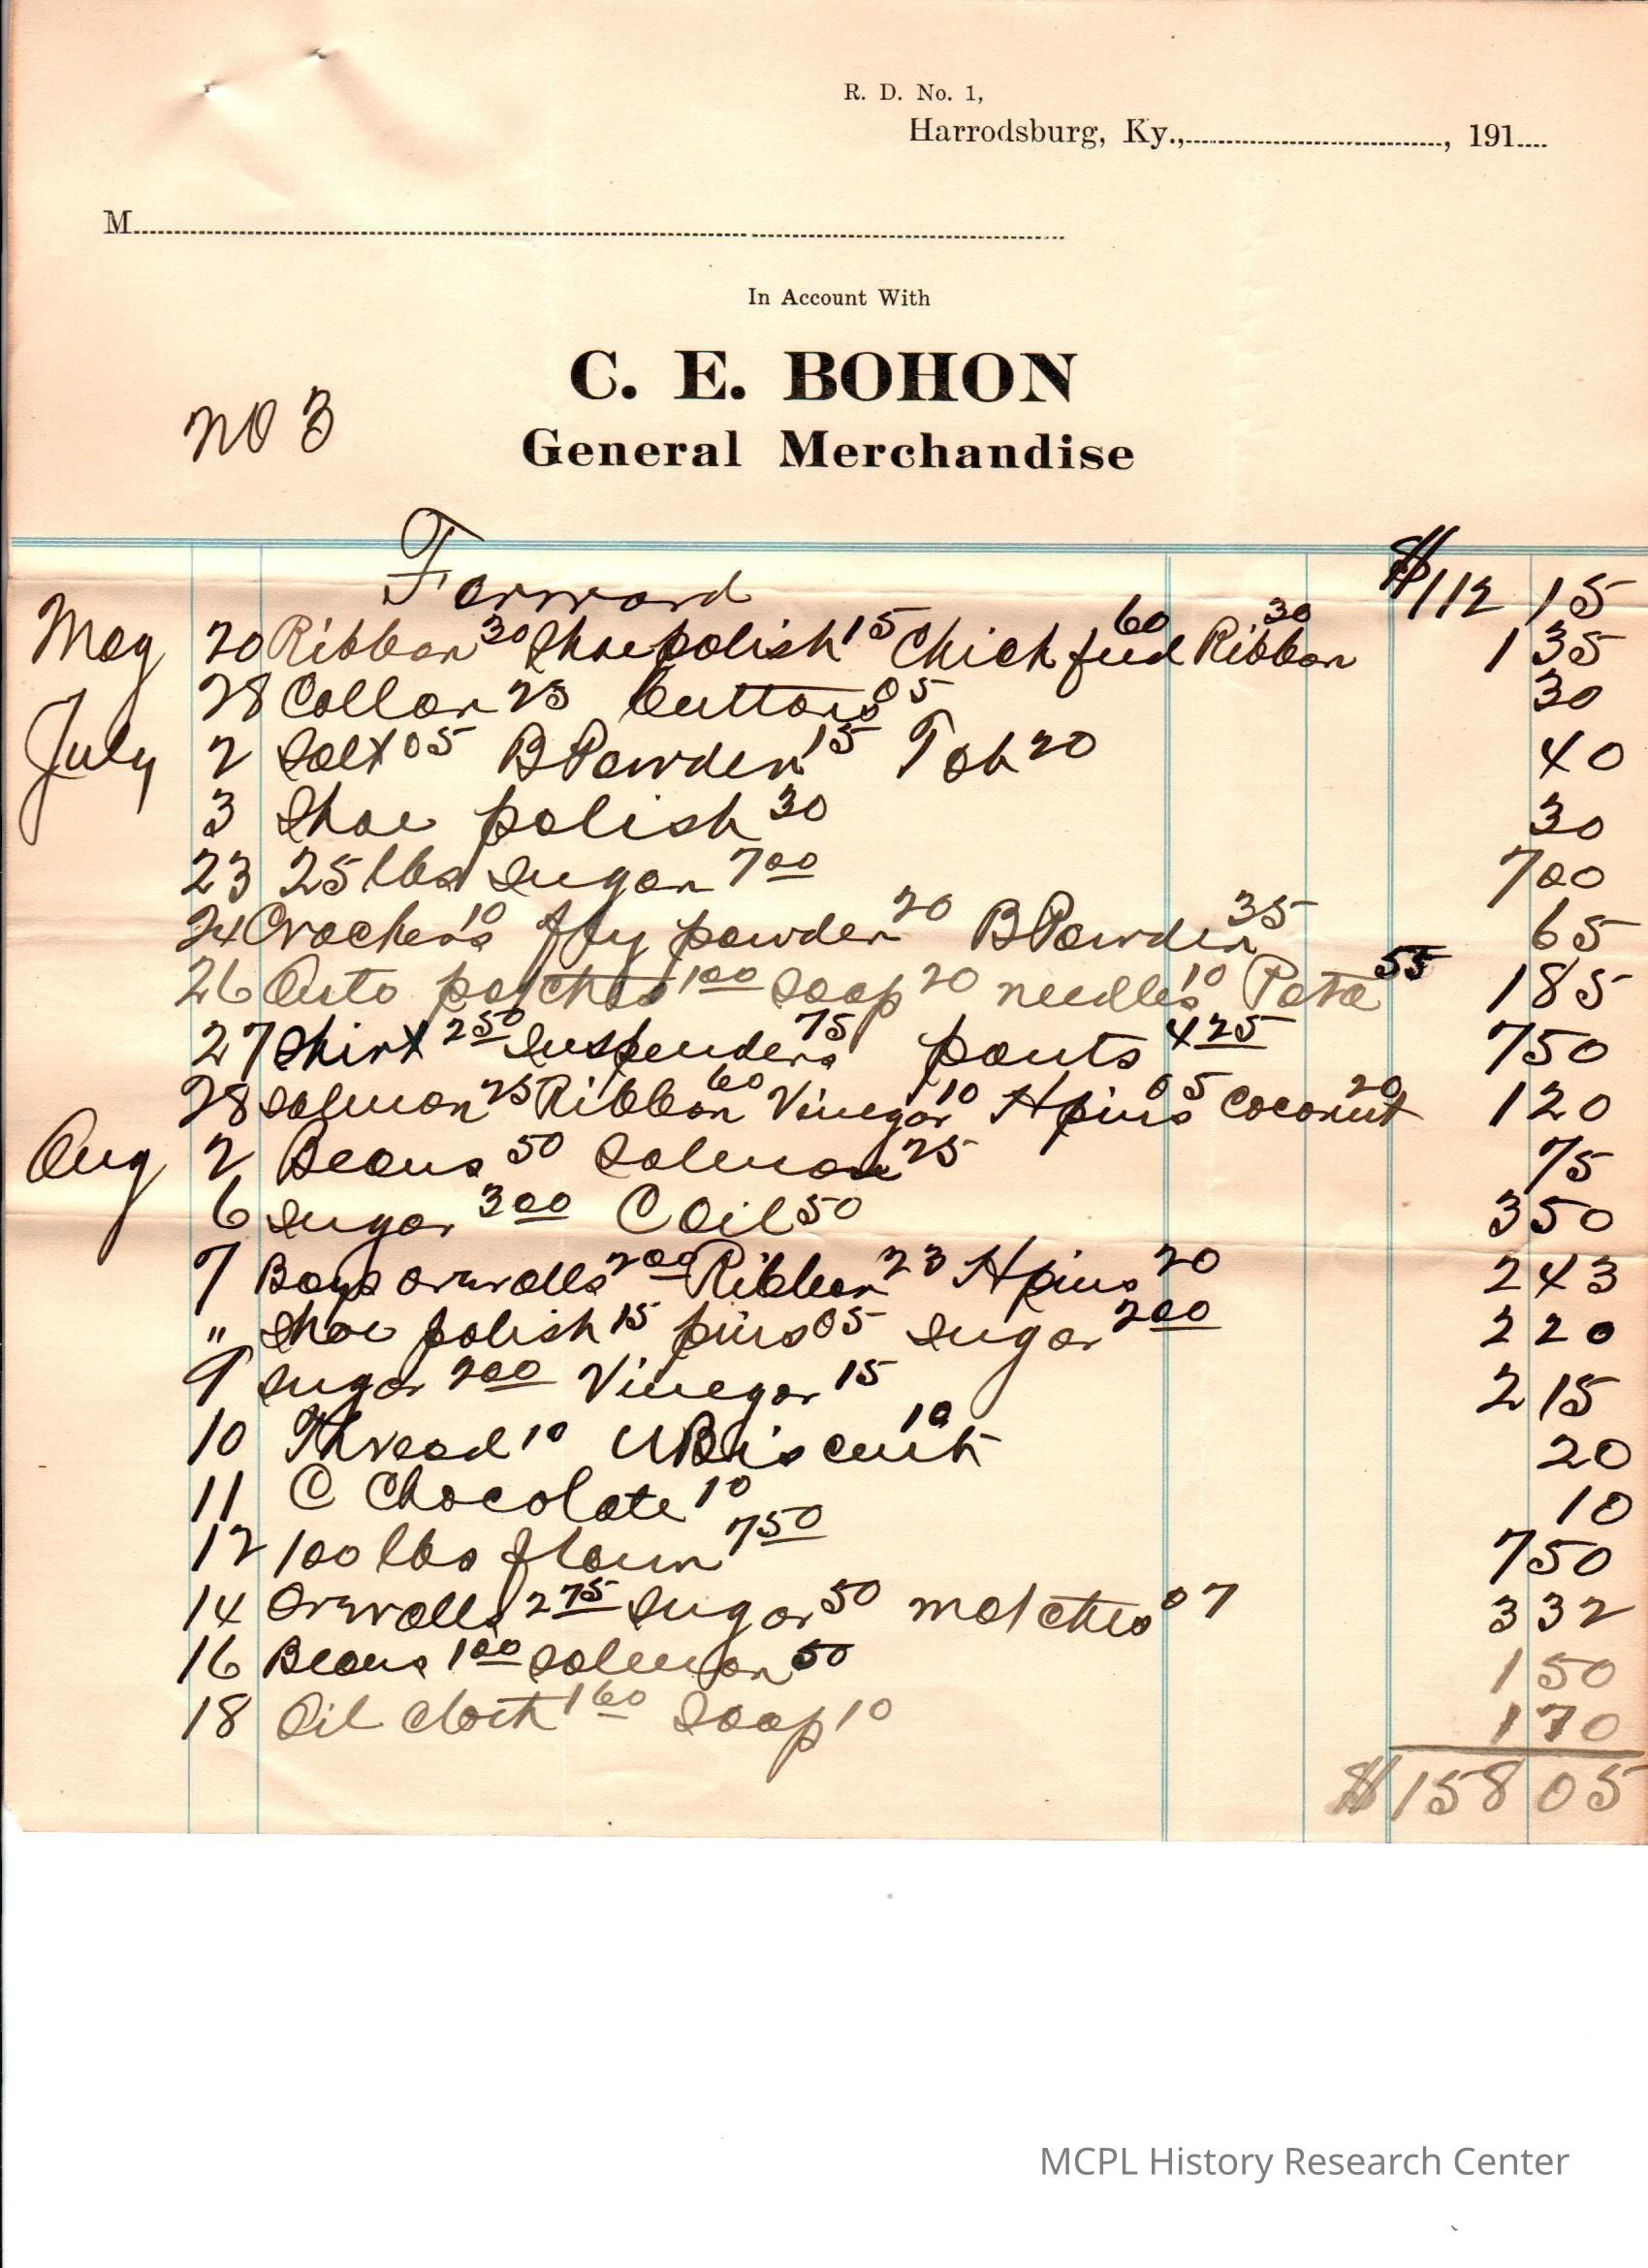 R. D. No. 1,
Harrodsburg, Ky.,, 191
M
In Account With
C. E. BOHON
General Merchandise
NO 3
Forward $112 15
May 20 Ribbon 30 Shoe polish 15 Chick feed 60 Ribbon 30 1 35
28 Collar 25 buttons 05 30
July 2 Salt 05 B Powder 15 Tob 20 40
3 Shoe polish 30 30
23 25 lbs sugar 7 00 7 00
24 Crackers 10 fly powder 20 B Powder 35 65
26 Auto patches 1 00 soap 20 needles 10 Pota 55 1 85
27 Shirt 2 50 Suspenders 75 pants 4 25 7 50
28 Salmon 25 Ribbon 60 Vinegar 10 H pins 05 Coconut 20 1 20
Aug 2 Beans 50 Salmon 25 75
6 sugar 3 00 C Oil 50 3 50
7 Boys overalls 2 00 Ribbon 23 H pins 20 2 43
" Shoe polish 15 pins 05 sugar 2 00 2 20
9 sugar 2 00 Vinegar 15 2 15
10 Thread 10 U Biscuit 10 20
11 C Chocolate 10 10
12 100 lbs flour 7 50 7 50
14 Overalls 2 75 sugar 50 matches 07 3 32
16 Beans 1 00 salmon 50 1 50
18 Oil cloth 1 60 soap 10 1 70
$158 05
MCPL History Research Center